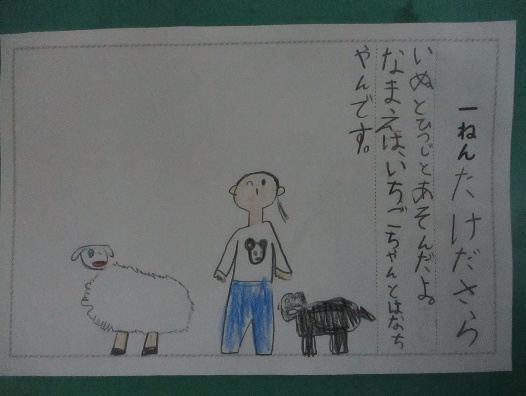 一ねんたけださら
いぬとひつじとあそんだよ。
なまえは、いちごちゃんとはなち
ゃんです。